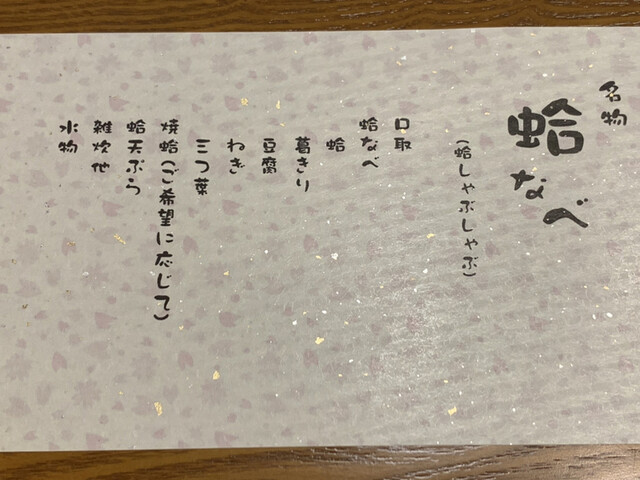 名物
蛤なべ
(蛤しゃぶしゃぶ)
口取
蛤なべ
蛤
葛きり
豆腐
ねぎ
三つ葉
焼蛤(ご希望に応じて)
蛤天ぷら
雑炊他
水物